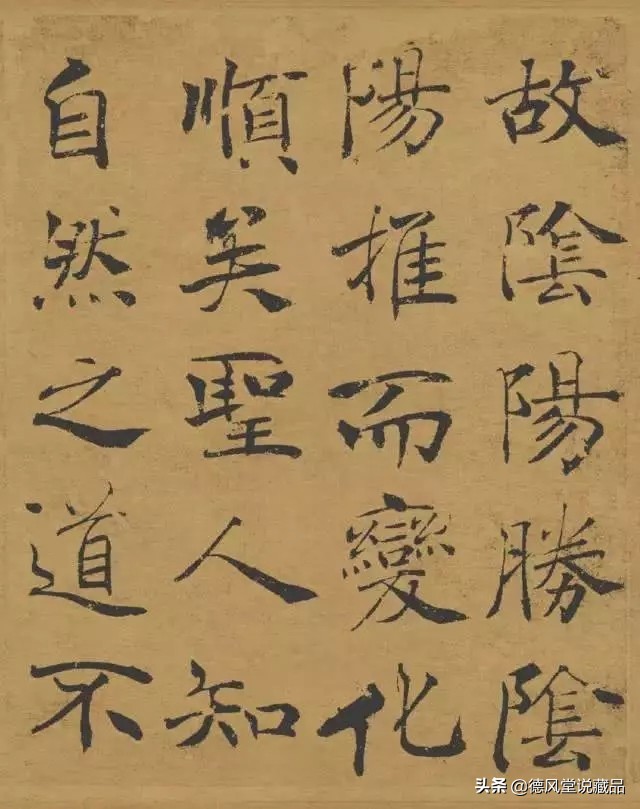 故陰陽勝陰
陽推而變化
順矣聖人知
自然之道不
头条 @德风堂说藏品